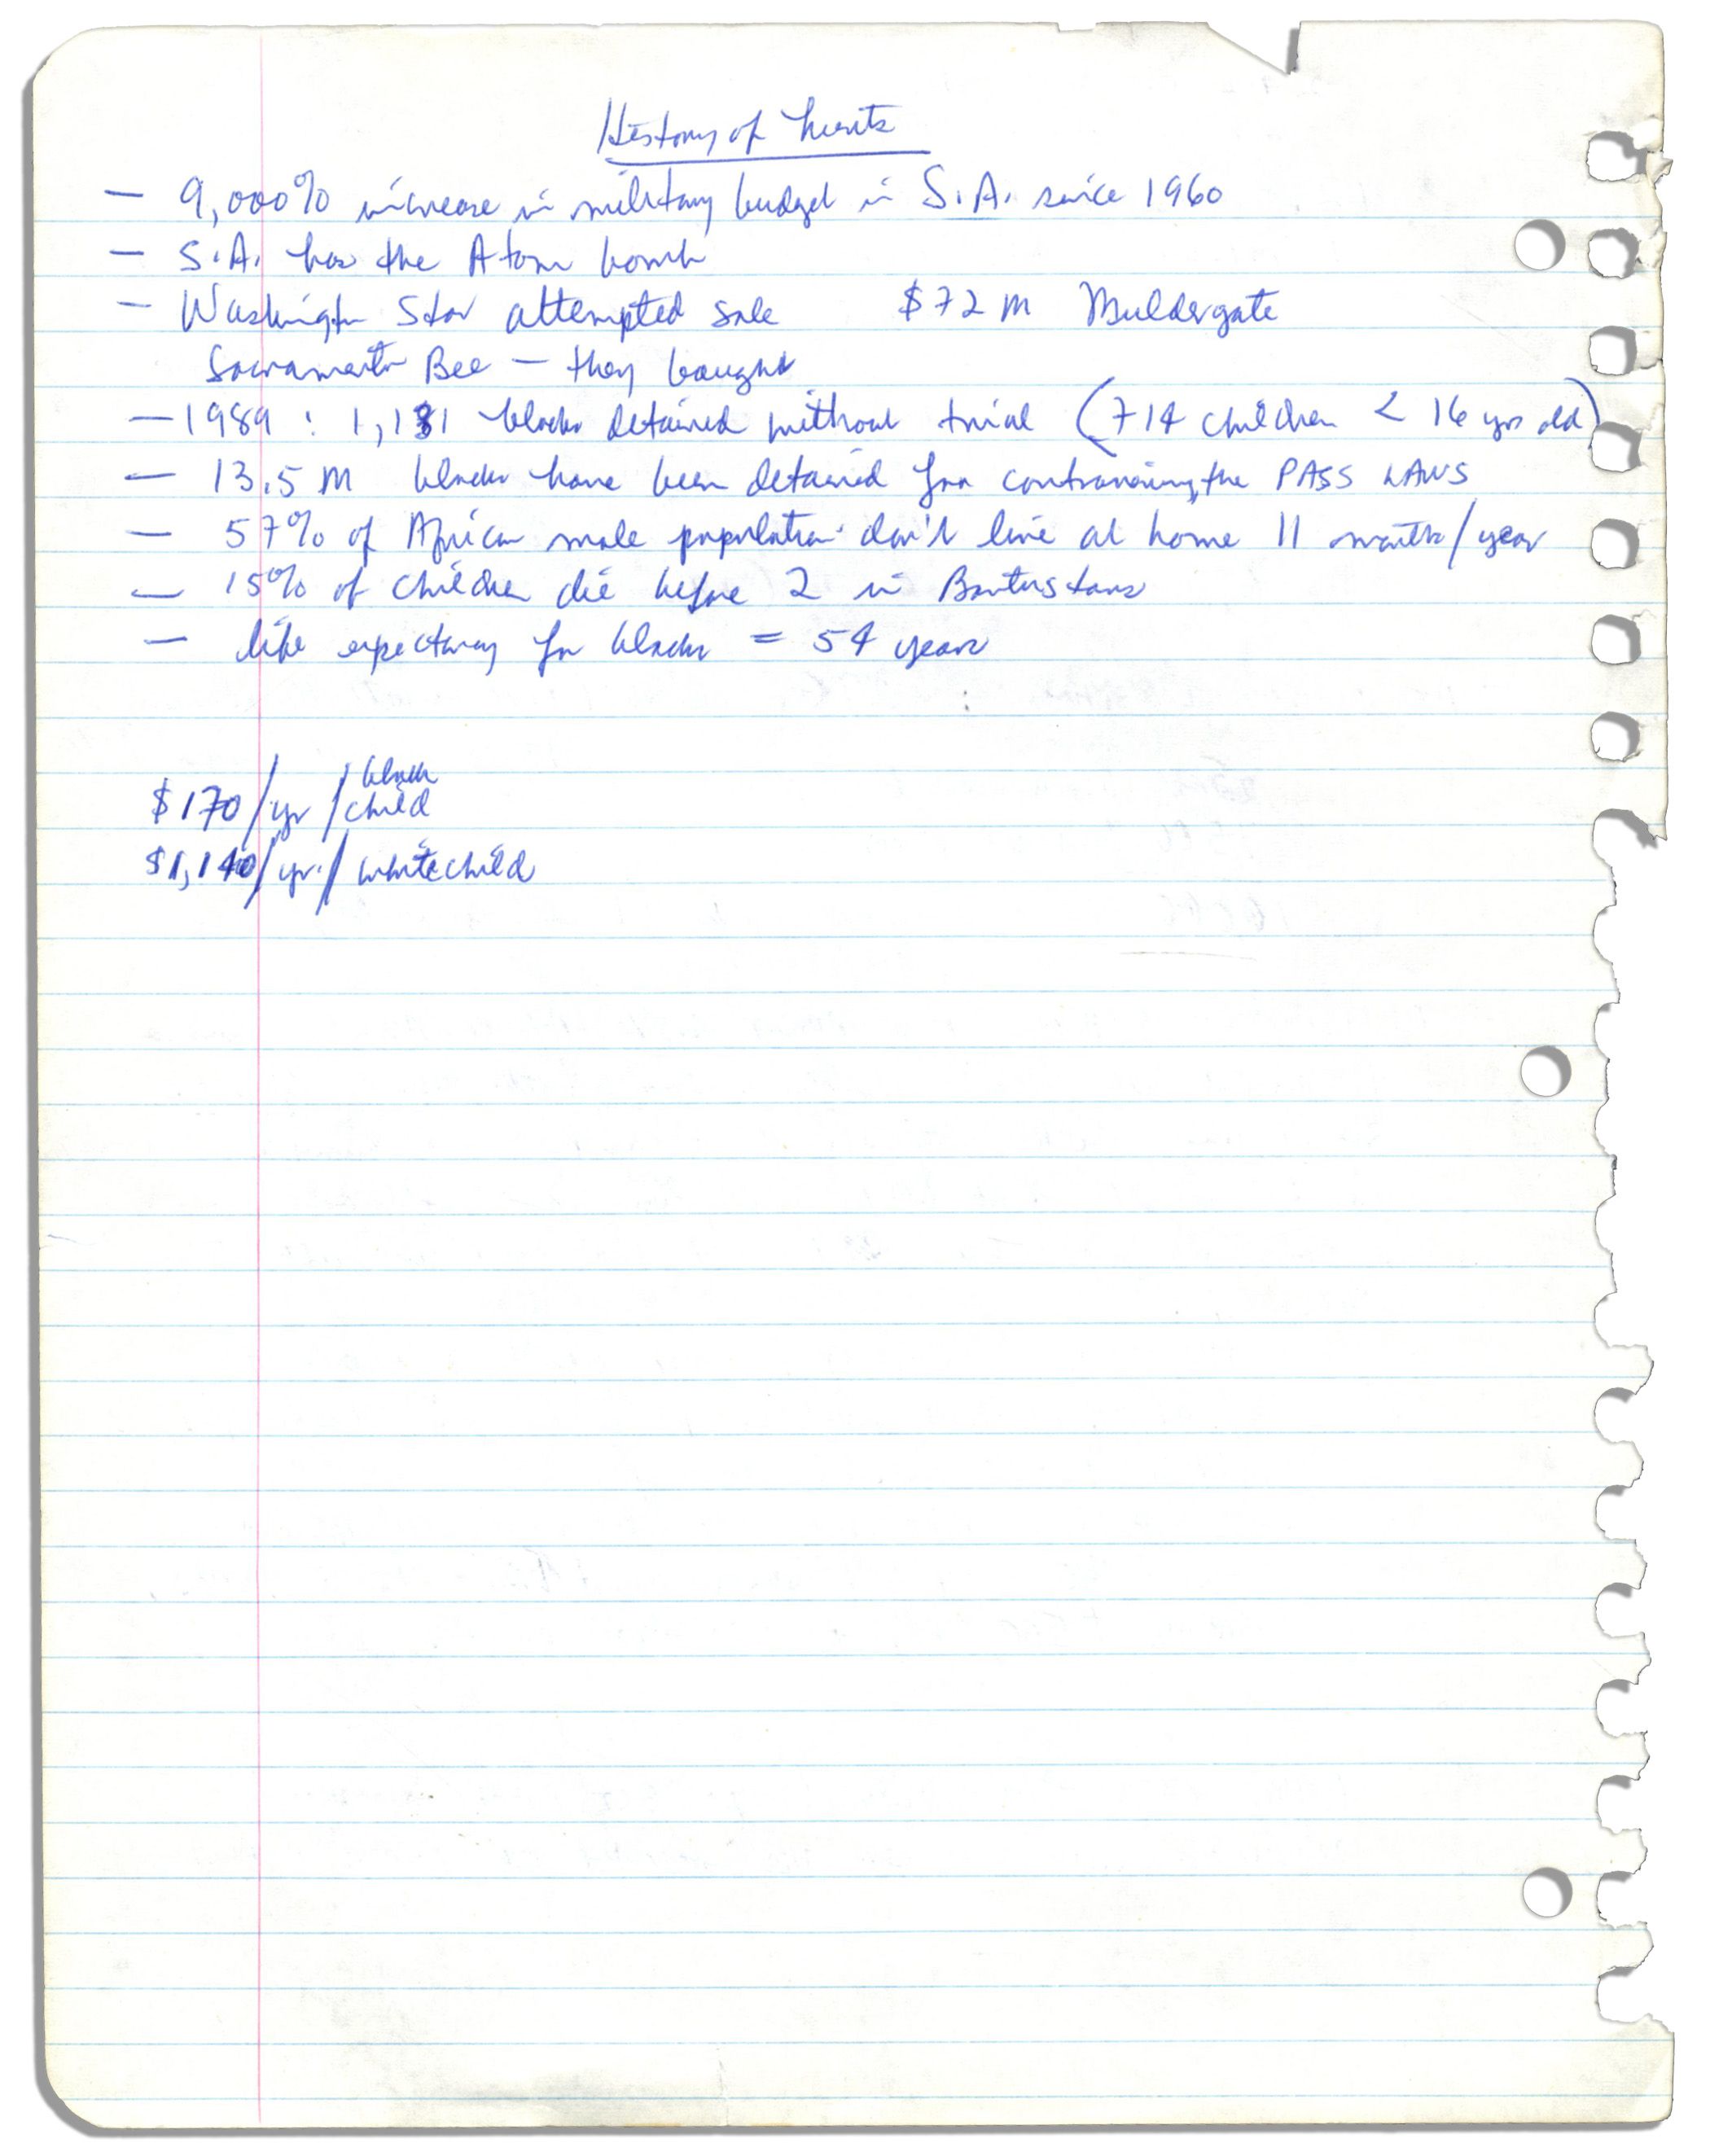 History of
— 9,000% increase in military budget in S.A. since 1960
— S.A. has the Atom bomb
— Washington Star attempted sale $72 M Muldergate
Sacramento Bee — they bought
— 1989 : blacks detained without trial (714 children < 16 yrs old)
— 13.5 M blacks have been detained for contravening the PASS LAWS
— 57% of African male population don't live at home 11 months/year
— 15% of children die before 2 in Bantustans
— life expectancy for blacks = 54 years
$170/yr/black child
$1,140/yr./white child